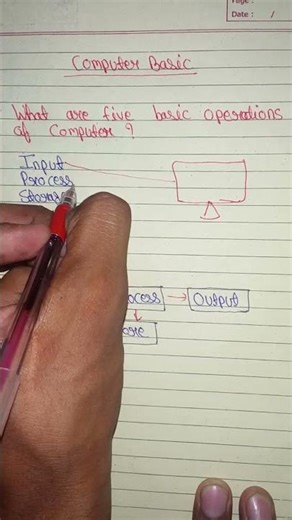 Page :
Date : /
Computer Basic
What are five basic operations
of Computer ?
Input
Process
Output